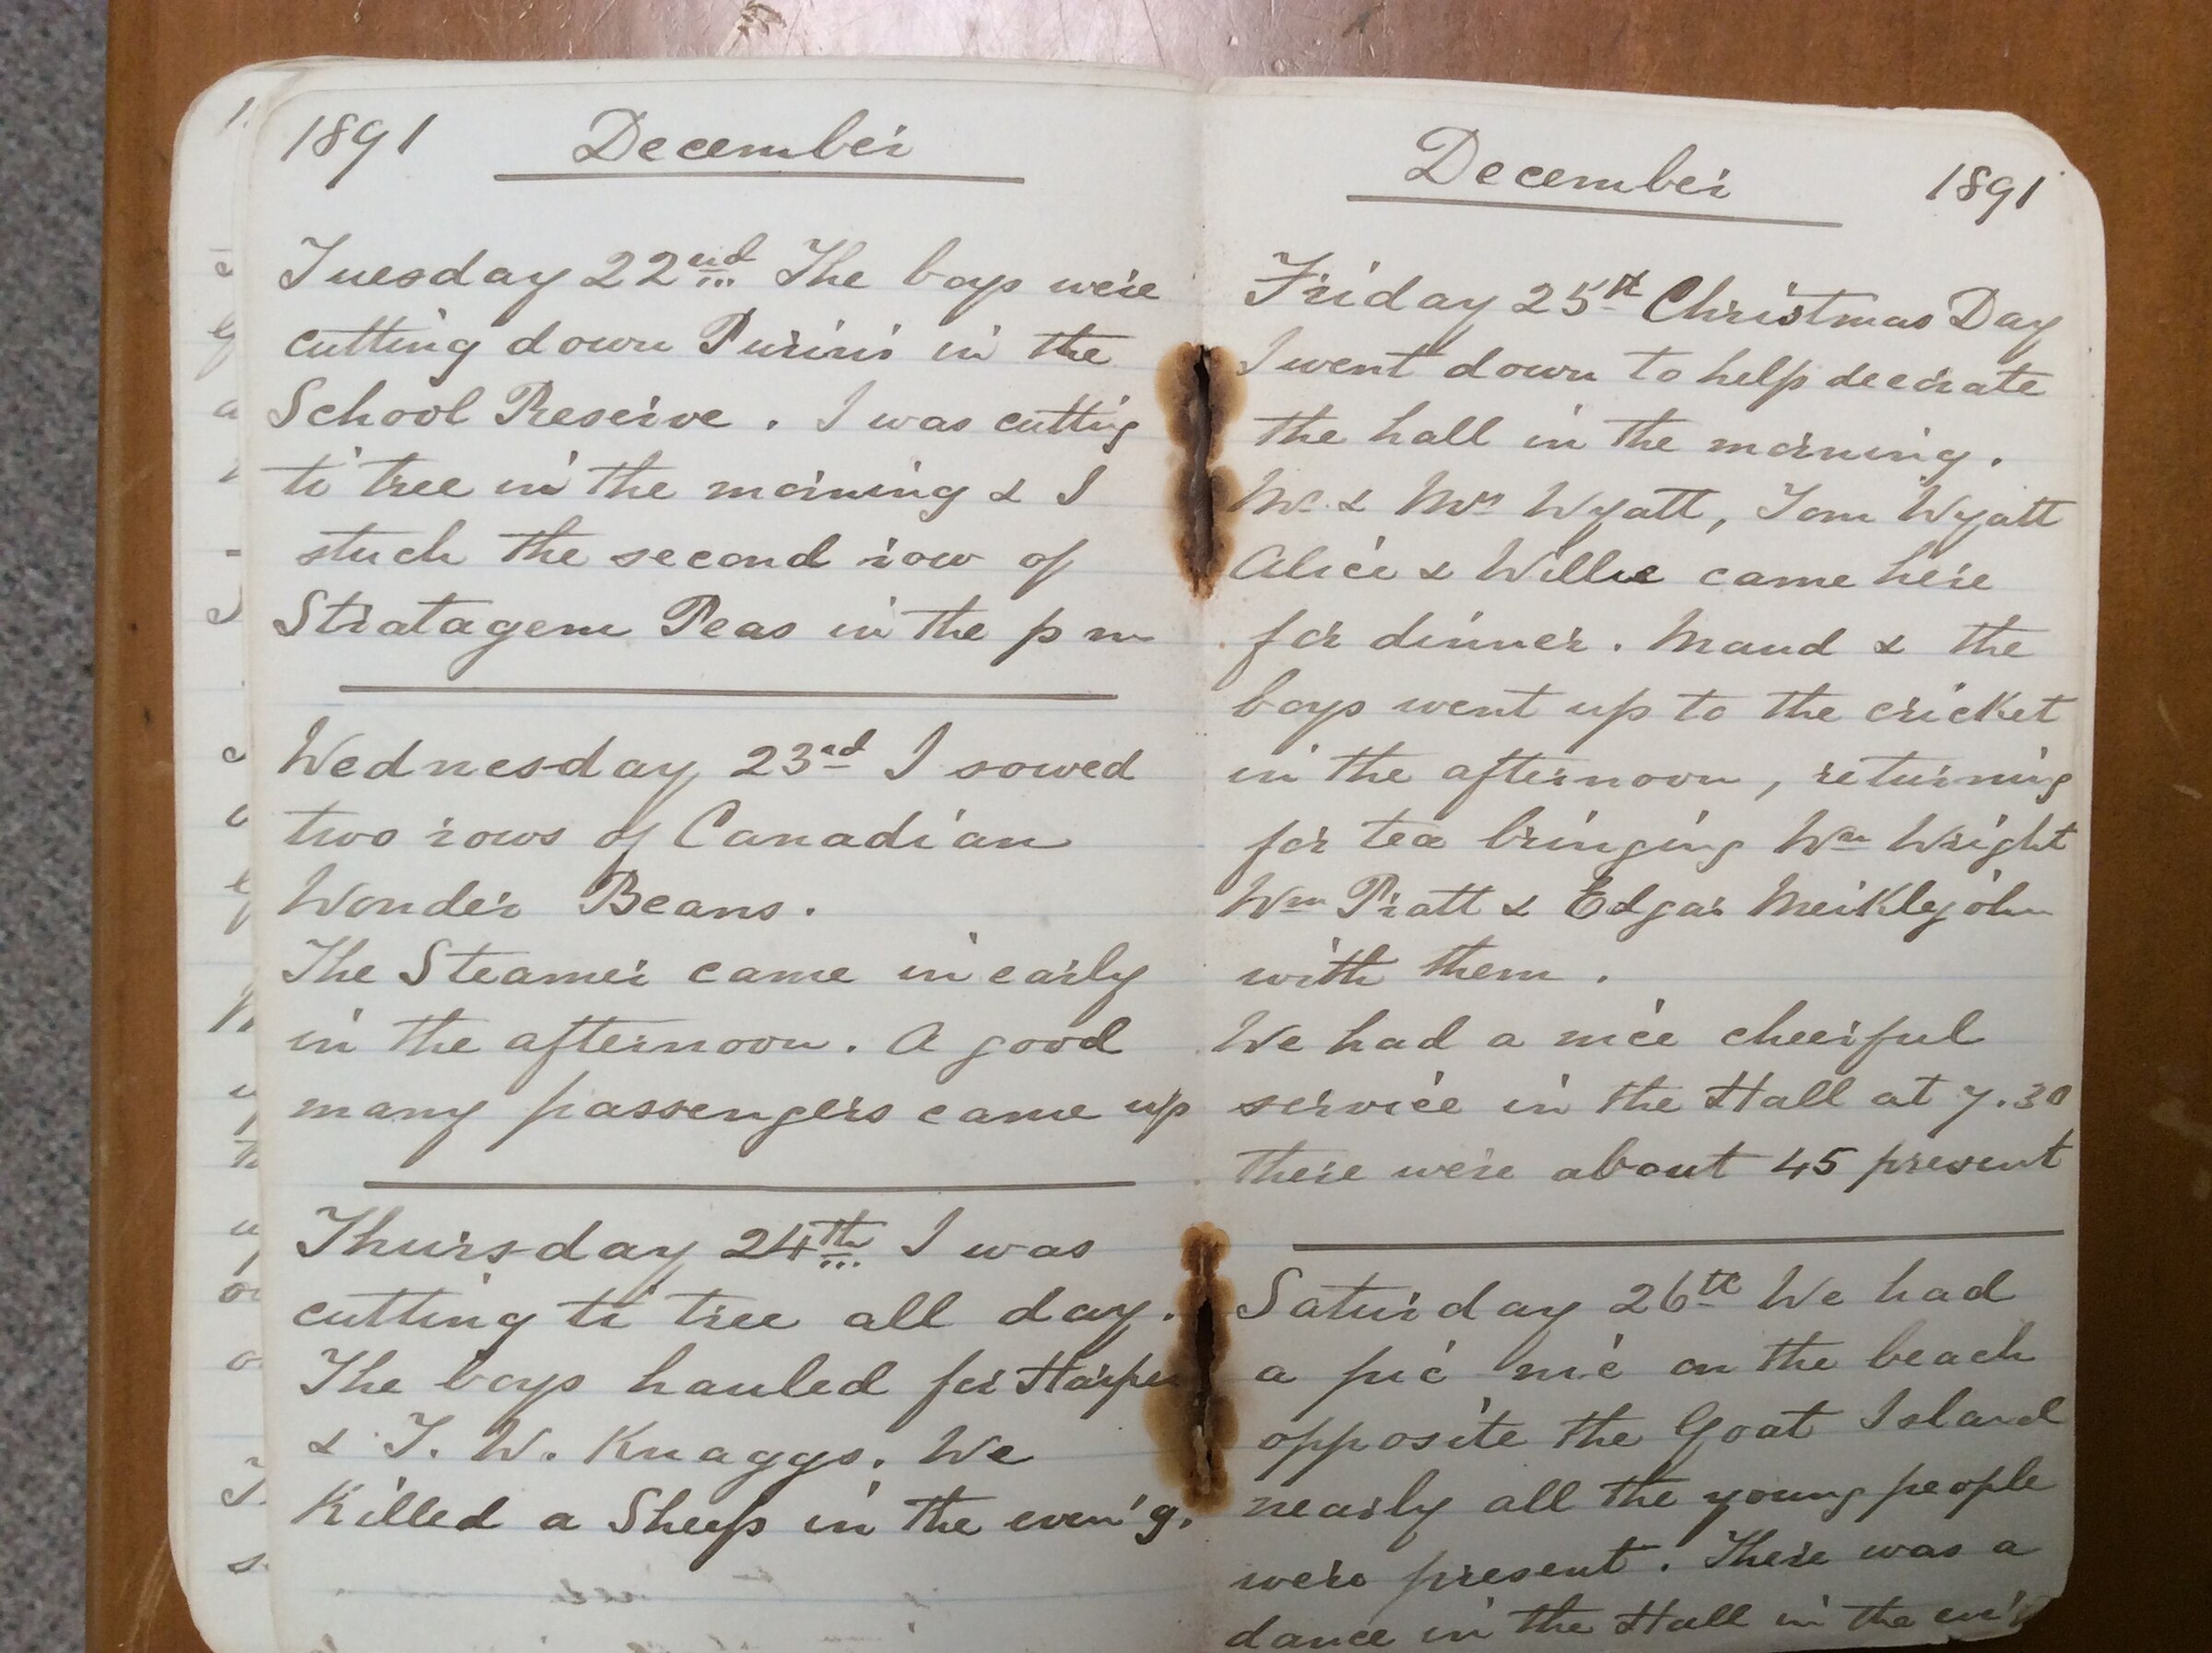 1891 December
Tuesday 22nd The boys were
cutting down Puriris in the
School Reserve. I was cuttig
ti tree in the morning & I
stuck the second row of
Stratagem Peas in the p m
Wednesday 23rd I sowed
two rows of Canadian
Wonder Beans.
The Steamer came in early
in the afternoon. A good
many passengers came up
Thursday 24th I was
cutting ti tree all day.
The boys hauled for Harper
& T. W. Knaggs. We
Killed a Sheep in the even'g.
December 1891
Friday 25th Christmas Day
I went down to help decorate
the hall in the morning.
Mr & Mrs Wyatt, Tom Wyatt
Alice & Willie came here
for dinner. Maud & the
boys went up to the cricket
in the afternoon, returning
for tea bringing Wm Wright
Wm Pratt & Edgar Meiklejohn
with them.
We had a nice cheerful
service in the Hall at 7.30
there were about 45 present
Saturday 26th We had
a pic nic on the beach
opposite the Goat Island
nearly all the young people
were present. There was a
dance in the Hall in the